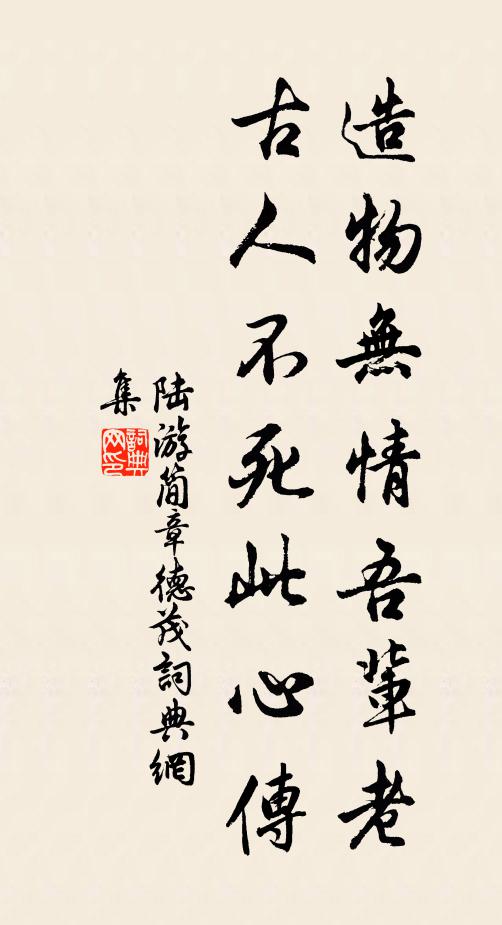 造物無情吾輩老
古人不死此心傳
陆游简章德茂詞典網
集
詞典
网印